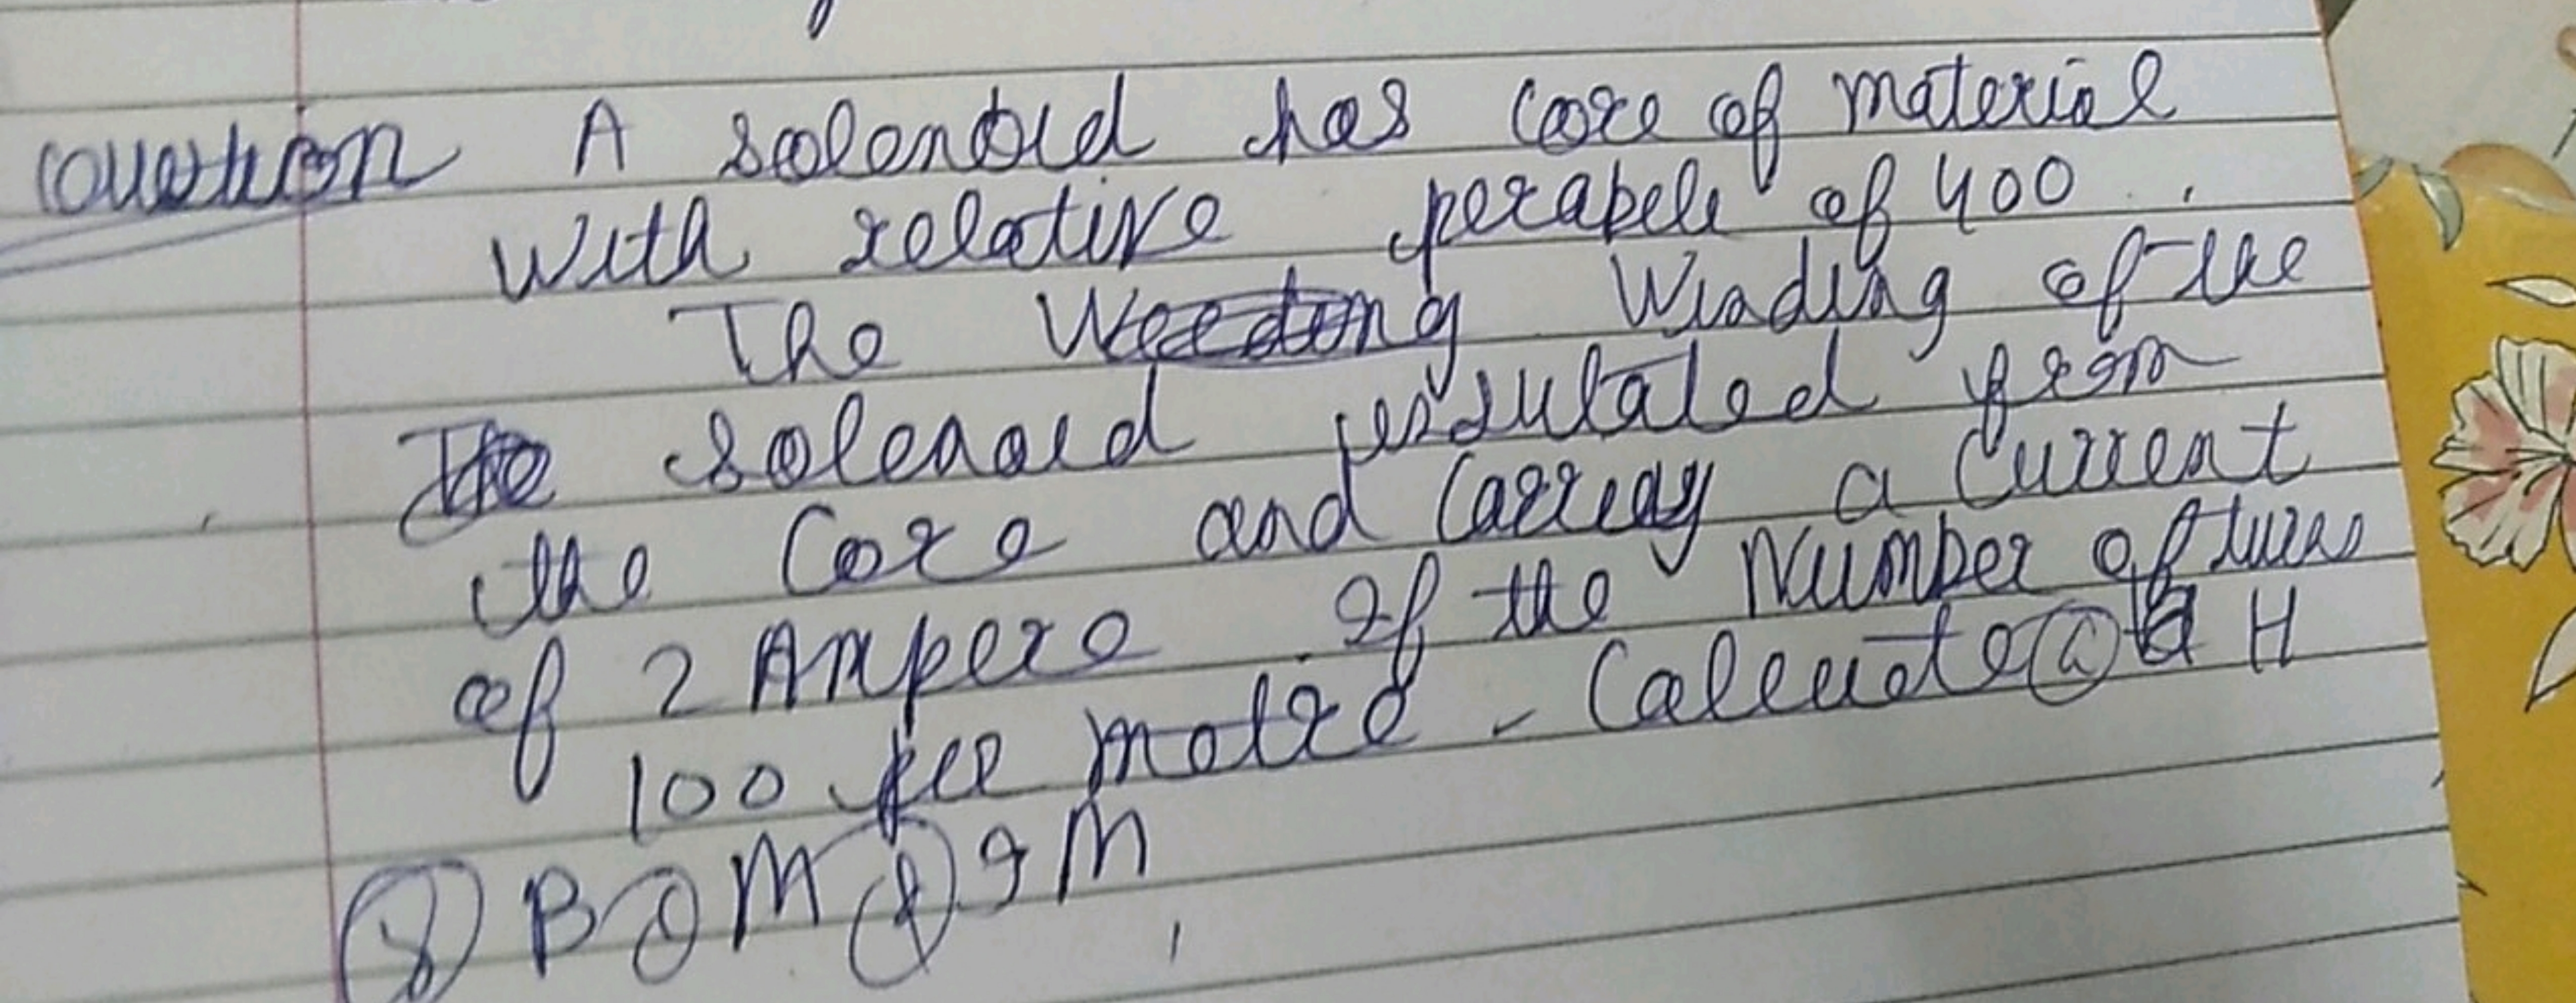 Question A solenoid has core of material
with relative perabele of 400.
The Winding of the
solenoid insulated from
the Core and Carreay a Current
of 2 Ampere If the Number of turns
100 per metre - Calcuate (a) H
(b) B (c) M (d) IM